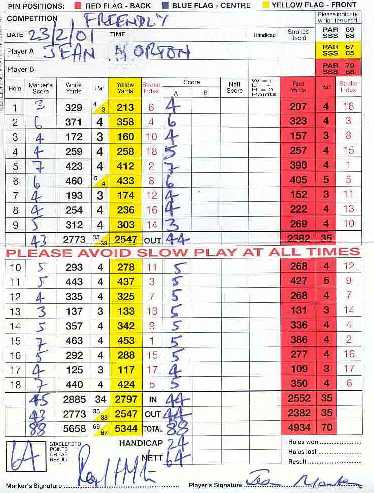 PIN POSITIONS: RED FLAG - BACK BLUE FLAG - CENTRE YELLOW FLAG - FRONT
COMPETITION FRIENDLY
DATE 23/2/01 Handicap Strokes Rec'd PAR 69 SSS 68
Player A JEAN MORTON PAR 67 SSS 65
Player B PAR 70
Hole Marker's Score White Yards Par Yellow Yards Stroke Index Score A B Nett Score Red Yards Par Stroke Index
1 3 329 213 6 4 207 4 18
2 6 371 4 358 4 6 323 4 3
3 4 172 3 160 10 4 157 3 8
4 4 259 4 258 18 5 257 4 15
5 7 423 4 412 2 7 390 4 1
6 6 460 433 8 6 405 5 5
7 4 193 3 174 12 4 152 3 11
8 4 254 4 236 16 4 222 4 13
9 5 312 4 303 14 3 269 4 10
43 2773 2547 OUT 44 2382 35
PLEASE AVOID SLOW PLAY AT ALL TIMES
10 5 293 4 278 11 5 268 4 12
11 5 443 4 437 3 5 427 5 9
12 4 335 4 325 7 5 268 4 7
13 3 137 3 133 13 5 131 3 14
14 5 357 4 342 9 5 336 4 4
15 7 463 4 453 1 5 386 4 2
16 5 292 4 288 15 5 277 4 16
17 4 125 3 117 17 4 109 3 17
18 7 440 4 424 5 5 350 4 6
45 2885 34 2797 IN 44 2552 35
43 2773 2547 OUT 44 2382 35
88 5658 5344 TOTAL 88 4934 70
HANDICAP 24
NETT 64
STABLEFORD POINTS OR PAR RESULT
Holes won
Holes lost
Result
Marker's Signature Player's Signature Jean Morton